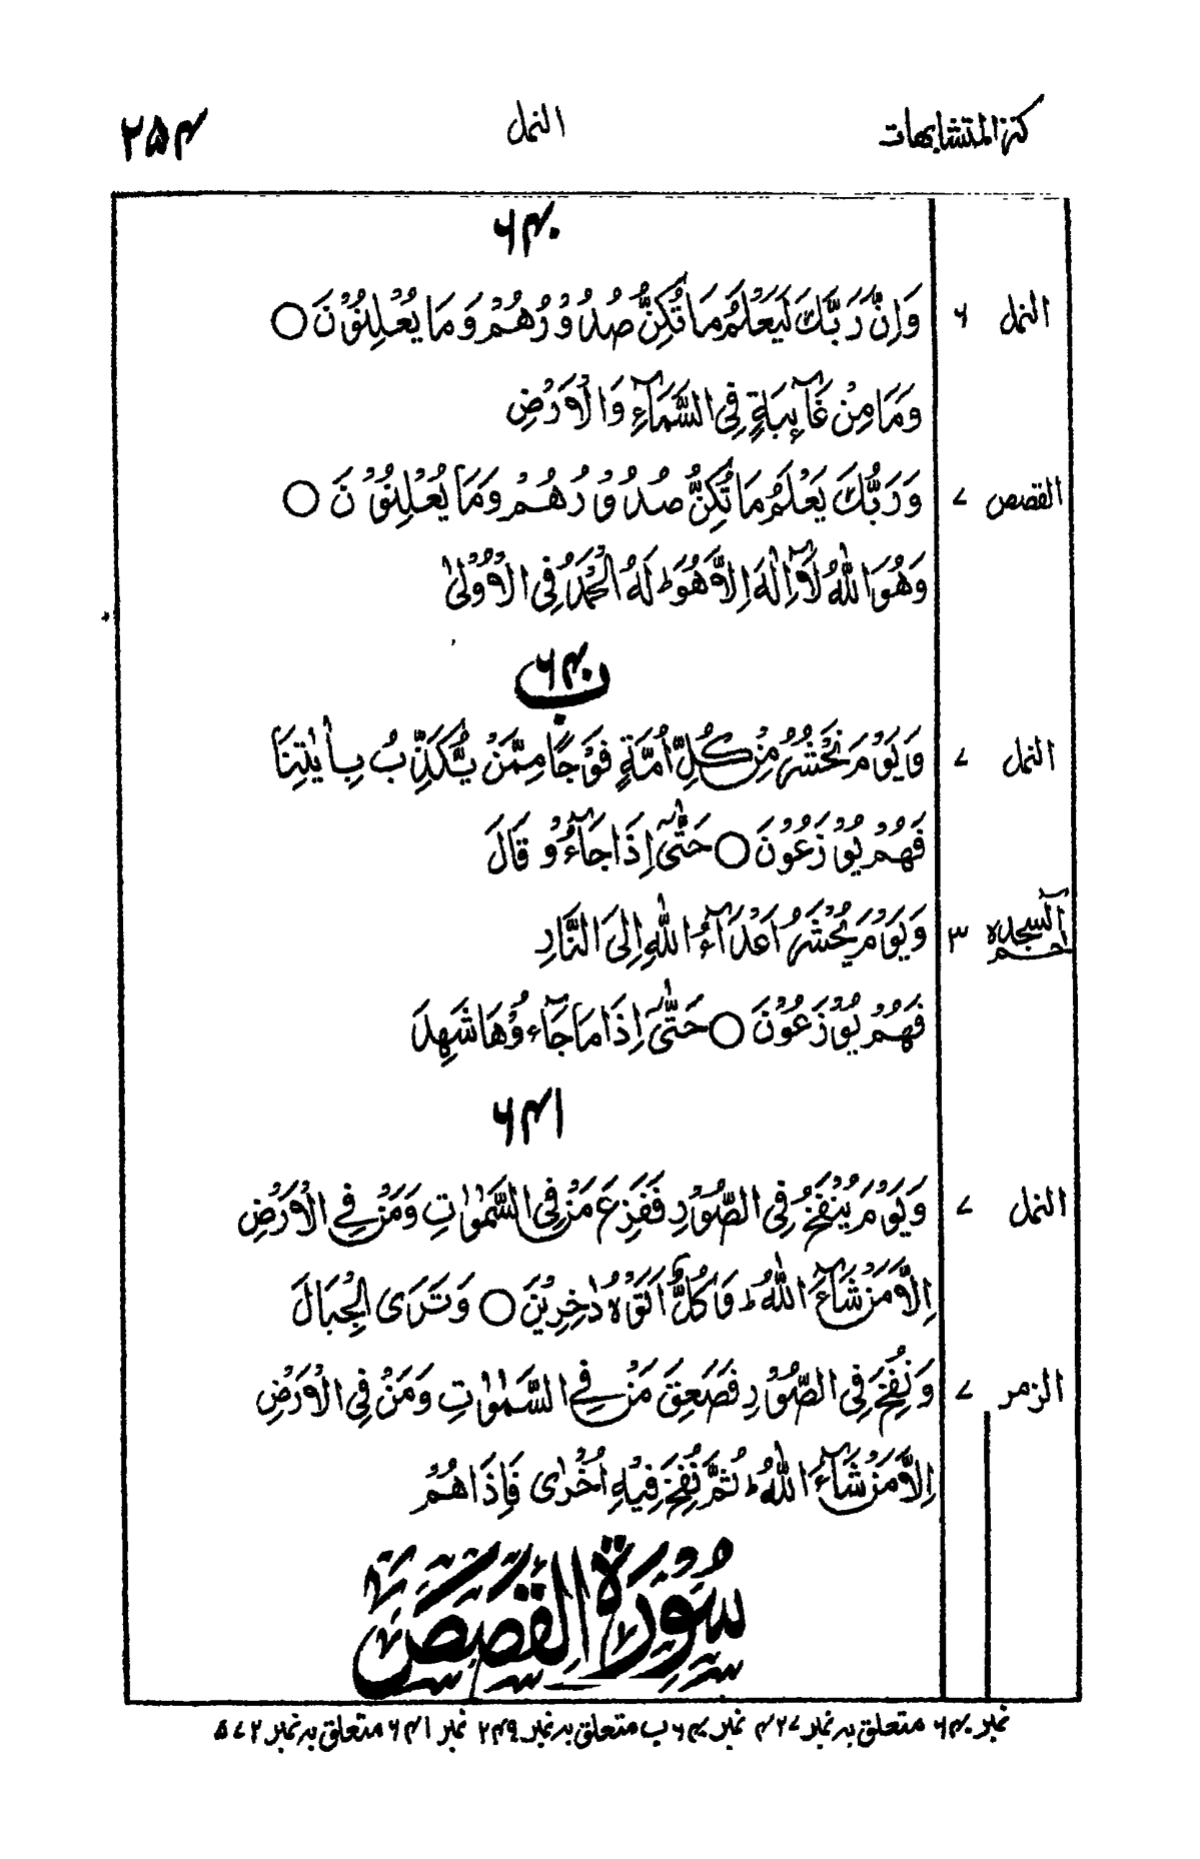 کنز المتشابہات النمل ۲۵۴
۶۴۰
النمل ۶ وَاِنَّ رَبَّكَ لَيَعْلَمُ مَا تُكِنُّ صُدُوْرُهُمْ وَمَا يُعْلِنُوْنَ ○
وَمَا مِنْ غَآئِبَةٍ فِى السَّمَآءِ وَالْاَرْضِ
القصص ۷ وَرَبُّكَ يَعْلَمُ مَا تُكِنُّ صُدُوْرُهُمْ وَمَا يُعْلِنُوْنَ ○
وَهُوَ اللّٰهُ لَآ اِلٰهَ اِلَّا هُوَ ط لَهُ الْحَمْدُ فِى الْاُوْلٰى
۶۴۰ ب
النمل ۷ وَيَوْمَ نَحْشُرُ مِنْ كُلِّ اُمَّةٍ فَوْجًا مِّمَّنْ يُّكَذِّبُ بِاٰيٰتِنَا
فَهُمْ يُوْزَعُوْنَ ○ حَتّٰىٓ اِذَا جَآءُوْ قَالَ
حٰم السجدہ ۳ وَيَوْمَ يُحْشَرُ اَعْدَآءُ اللّٰهِ اِلَى النَّارِ
فَهُمْ يُوْزَعُوْنَ ○ حَتّٰىٓ اِذَا مَا جَآءُوْهَا شَهِدَ
۶۴۱
النمل ۷ وَيَوْمَ يُنْفَخُ فِى الصُّوْرِ فَفَزِعَ مَنْ فِى السَّمٰوٰتِ وَمَنْ فِى الْاَرْضِ
اِلَّا مَنْ شَآءَ اللّٰهُ ط وَكُلٌّ اَتَوْهُ دٰخِرِيْنَ ○ وَتَرَى الْجِبَالَ
الزمر ۷ وَنُفِخَ فِى الصُّوْرِ فَصَعِقَ مَنْ فِى السَّمٰوٰتِ وَمَنْ فِى الْاَرْضِ
اِلَّا مَنْ شَآءَ اللّٰهُ ط ثُمَّ نُفِخَ فِيْهِ اُخْرٰى فَاِذَا هُمْ
سُوْرَةُ الْقَصَصِ
نمبر ۶۴۰ متعلق بہ نمبر ۴۲۷ نمبر ۶۴۰ ب متعلق بہ نمبر ۲۴۹ نمبر ۶۴۱ متعلق بہ نمبر ۵۷۲